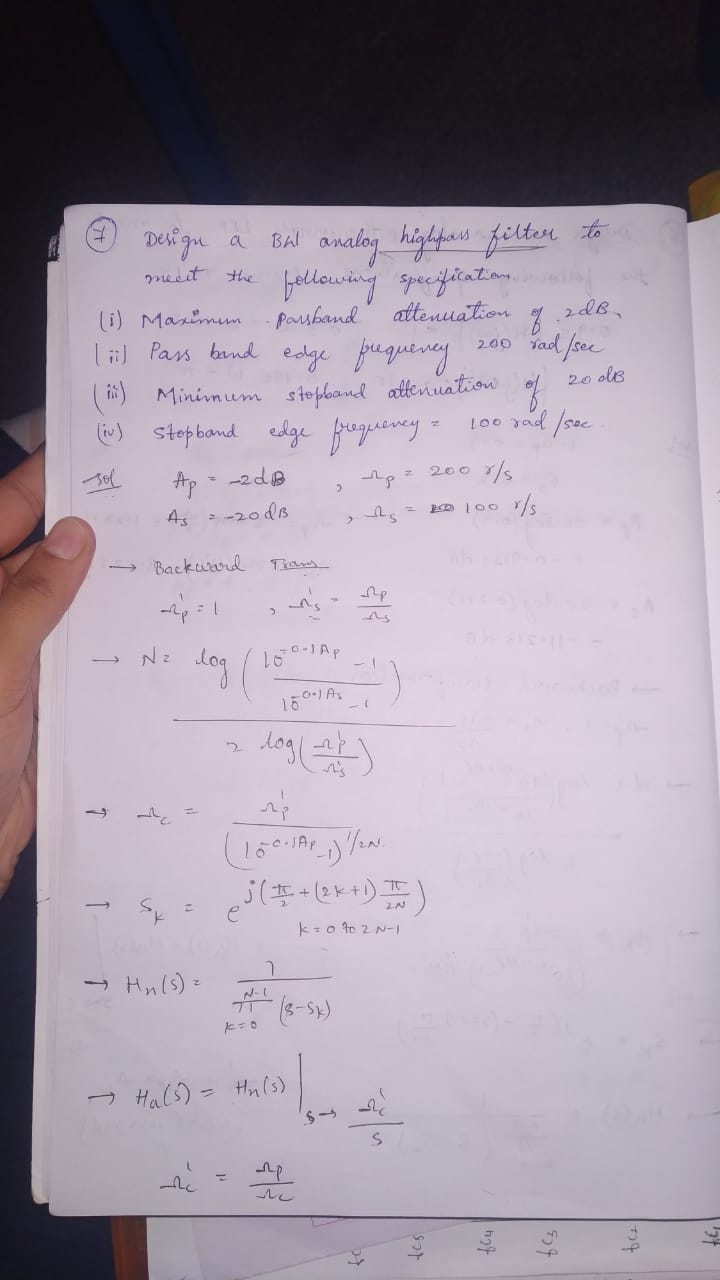 7 Design a BW analog highpass filter to
meet the following specification.
(i) Maximum passband attenuation of 2dB
(ii) Pass band edge frequency 200 rad/sec
(iii) Minimum stopband attenuation of 20 dB
(iv) stopband edge frequency = 100 rad/sec.
sol Ap = -2dB , Ωp = 200 r/s
As = -20dB , Ωs = 100 r/s
→ Backward Trans
Ωp' = 1 , Ωs' = Ωp/Ωs
→ N = log ( (10^-0.1Ap - 1) / (10^-0.1As - 1) )
2 log ( Ωp'/Ωs' )
→ Ωc = Ωp' / (10^-0.1Ap - 1)^1/2N
→ Sk = e^j(π/2 + (2k+1) π/2N)
k = 0 to 2N-1
→ Hn(s) = 1 / N-1 π k=0 (s-sk)
→ Ha(s) = Hn(s) | s→ Ωc'/s
Ωc' = Ωp/Ωc
fc5
fc4
fc3
fc2